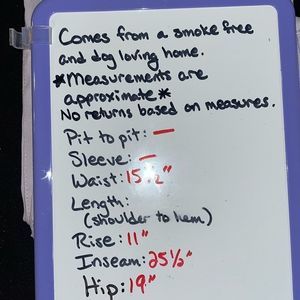 Comes from a smoke free
and dog loving home.
*Measurements are
approximate*
No returns based on measures.
Pit to pit: —
Sleeve: —
Waist: 15½"
Length:
(shoulder to hem)
Rise: 11"
Inseam: 25½"
Hip: 19"